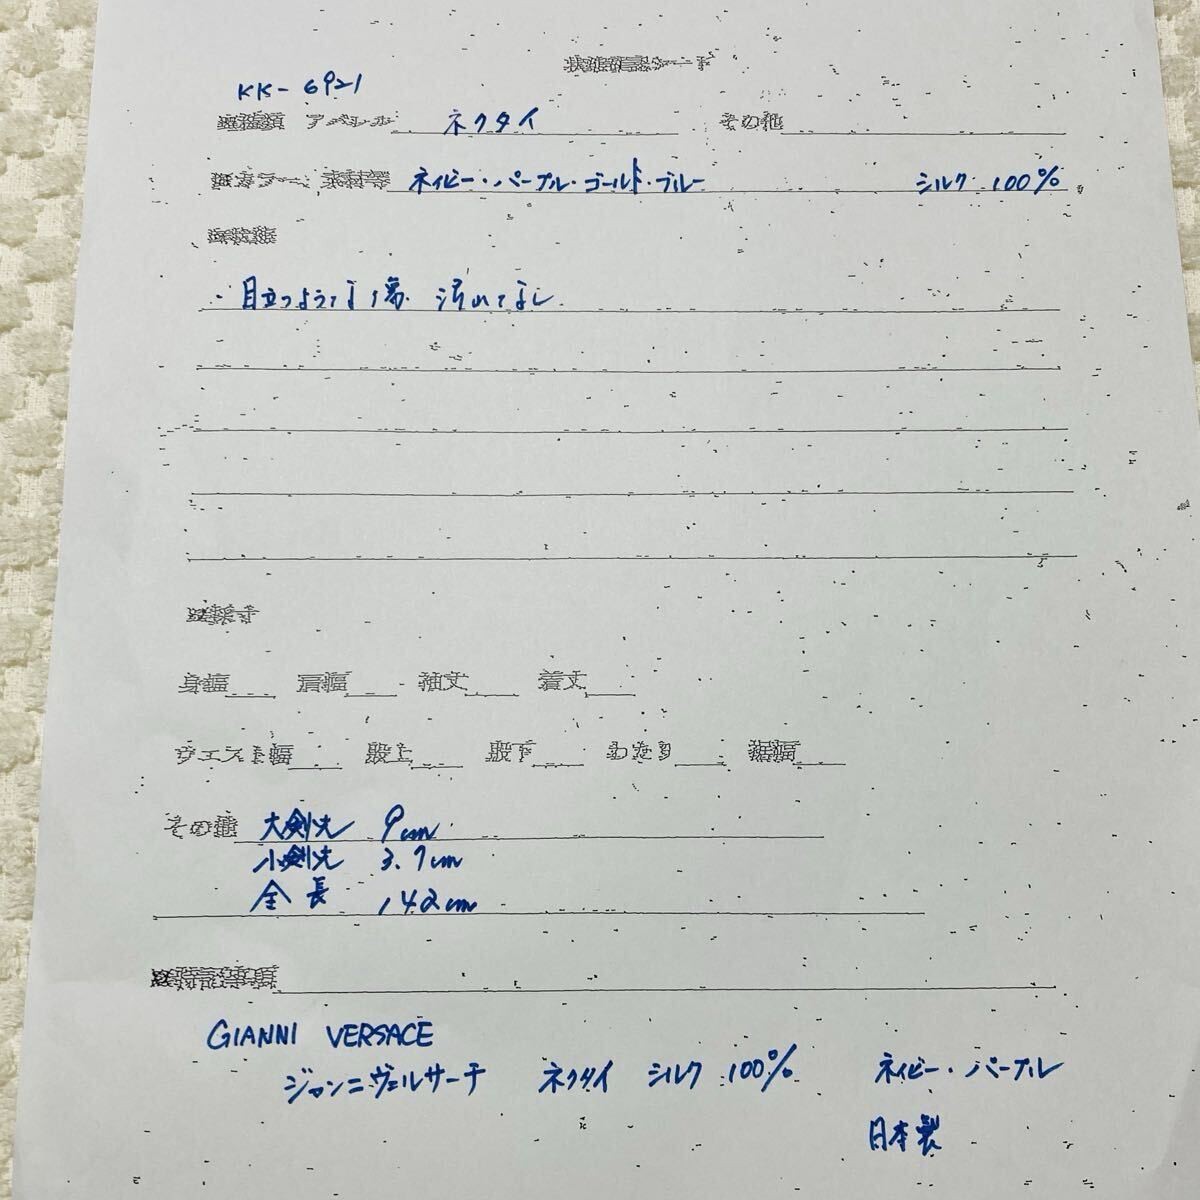 状態確認シート
KK-6921
アパレル ネクタイ その他
ネイビー・パープル・ゴールド・ブルー シルク 100%
・目立つような傷 汚れてなし
身幅 肩幅 袖丈 着丈
ウエスト幅 股上 股下 わたり 裾幅
その他 大剣先 9cm
小剣先 3.7cm
全長 142cm
GIANNI VERSACE
ジャンニヴェルサーチ ネクタイ シルク 100% ネイビー・パープル
日本製